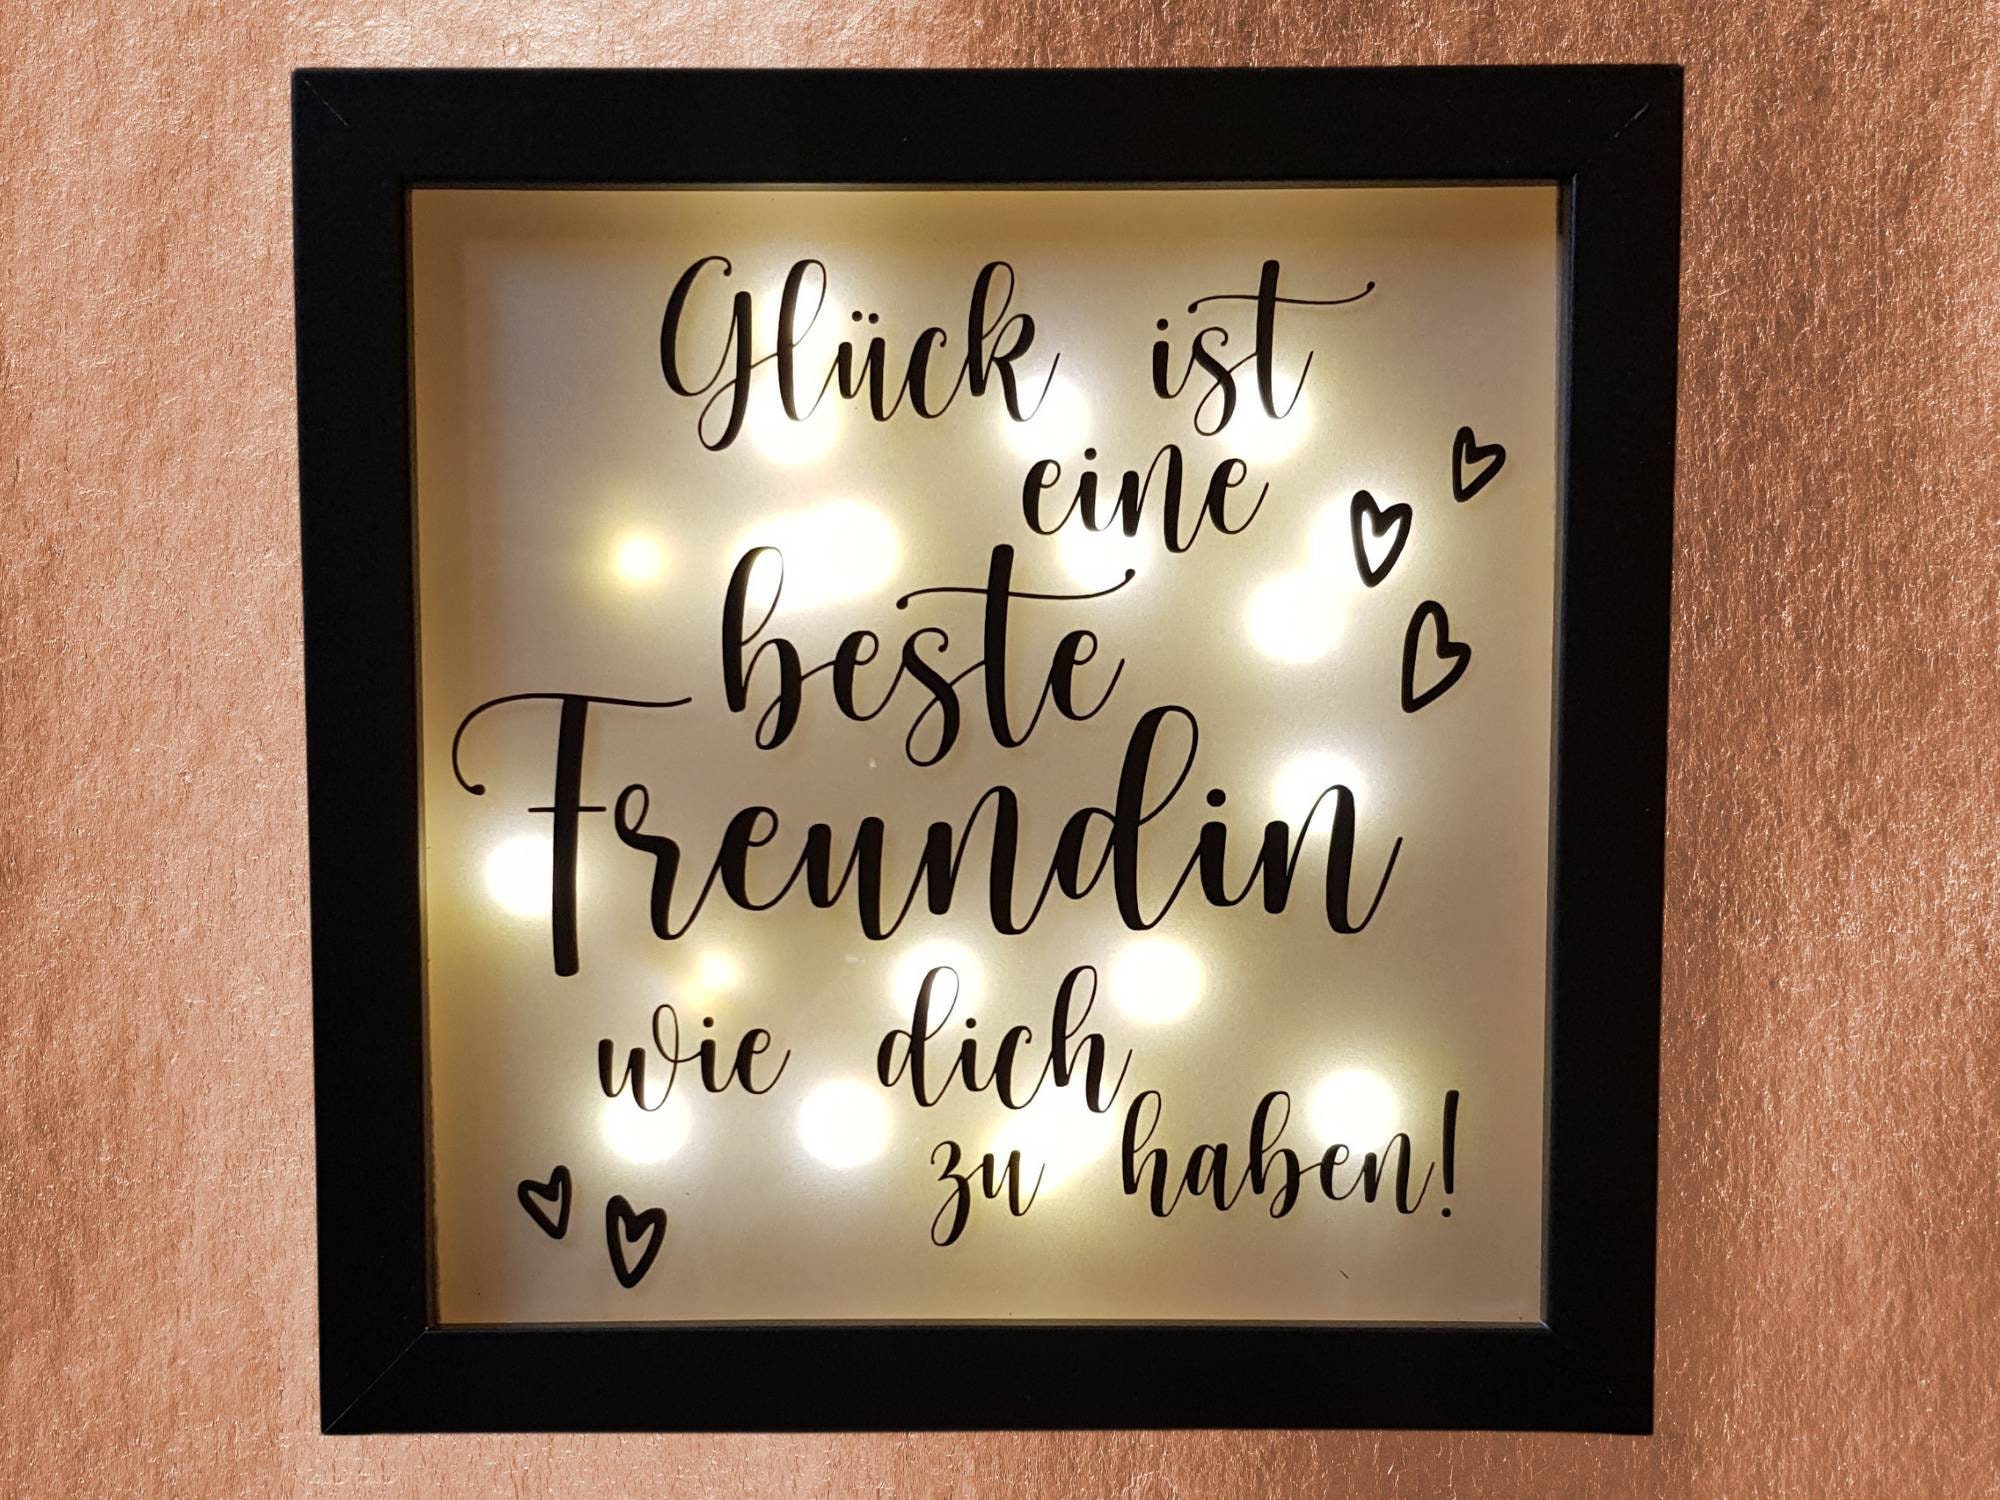 Glück ist
eine
beste
Freundin
wie dich
zu haben!